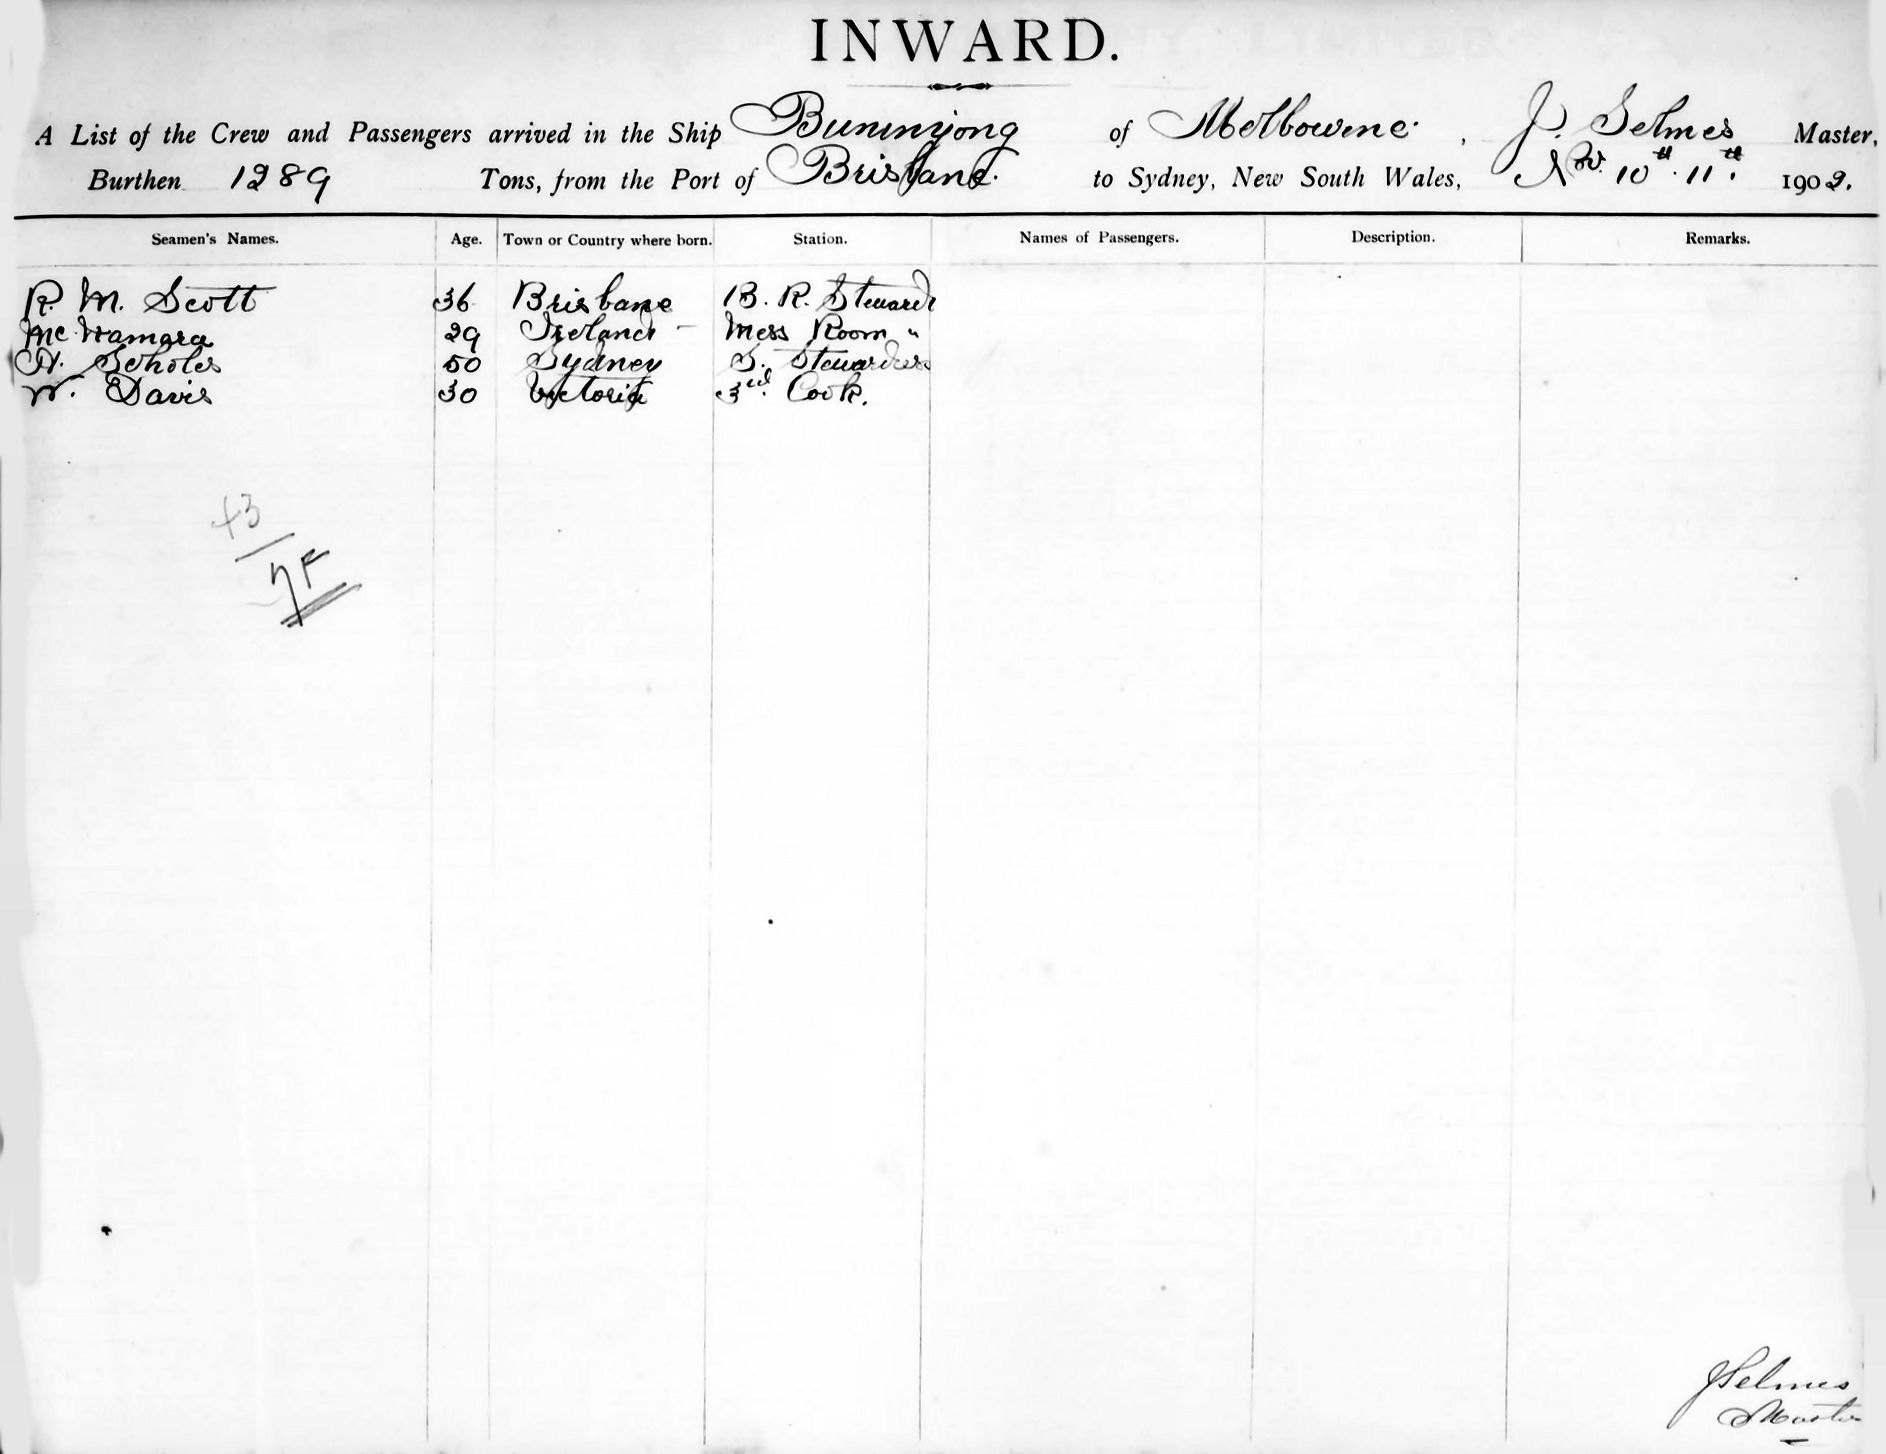 INWARD.
A List of the Crew and Passengers arrived in the Ship Buninyong of Melbourne. , J. Selmes Master,
Burthen 1289 Tons, from the Port of Brisbane. to Sydney, New South Wales, Nov. 10th. 11th. 1902.
Seamen's Names. Age. Town or Country where born. Station. Names of Passengers. Description. Remarks.
R. M. Scott 36 Brisbane B. R. Steward
McNamara 29 Ireland - Mess Room "
H. Scholes 50 Sydney S. Stewardess
W. Davis 30 Victoria 3rd. Cook.
43
7F
J Selmes
Master